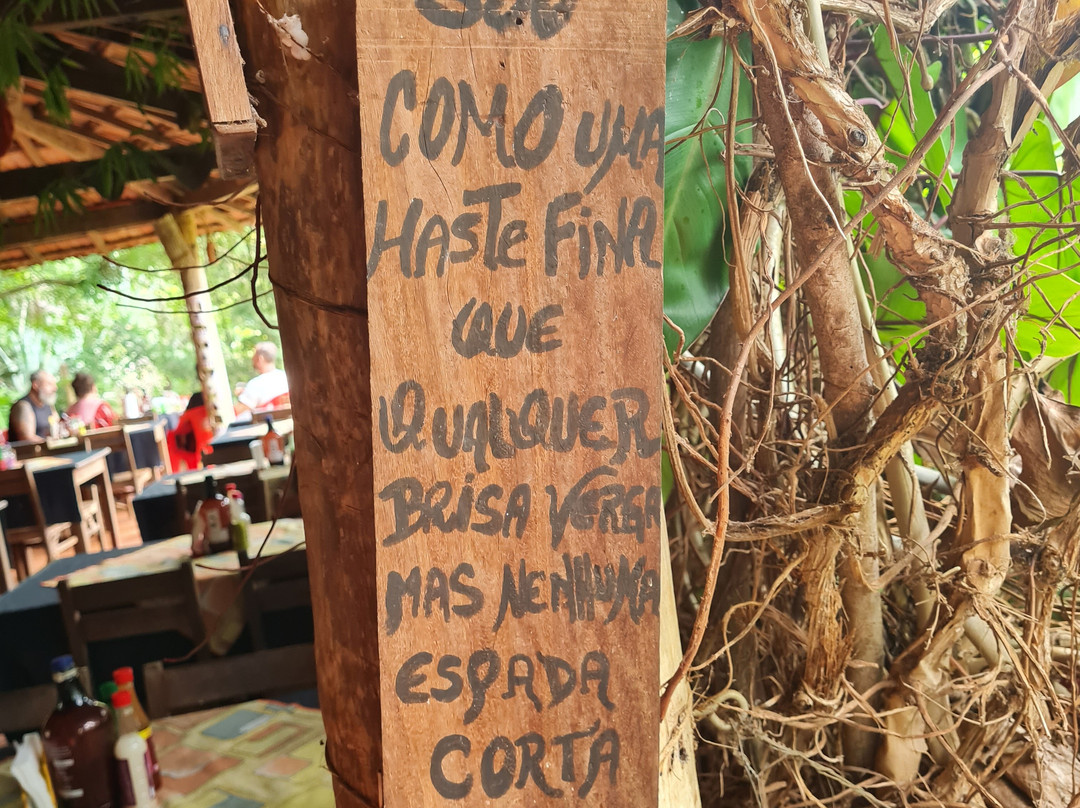 SOU
COMO UMA
HASTE FINA
QUE
QUALQUER
BRISA VERGA
MAS NENHUMA
ESPADA
CORTA